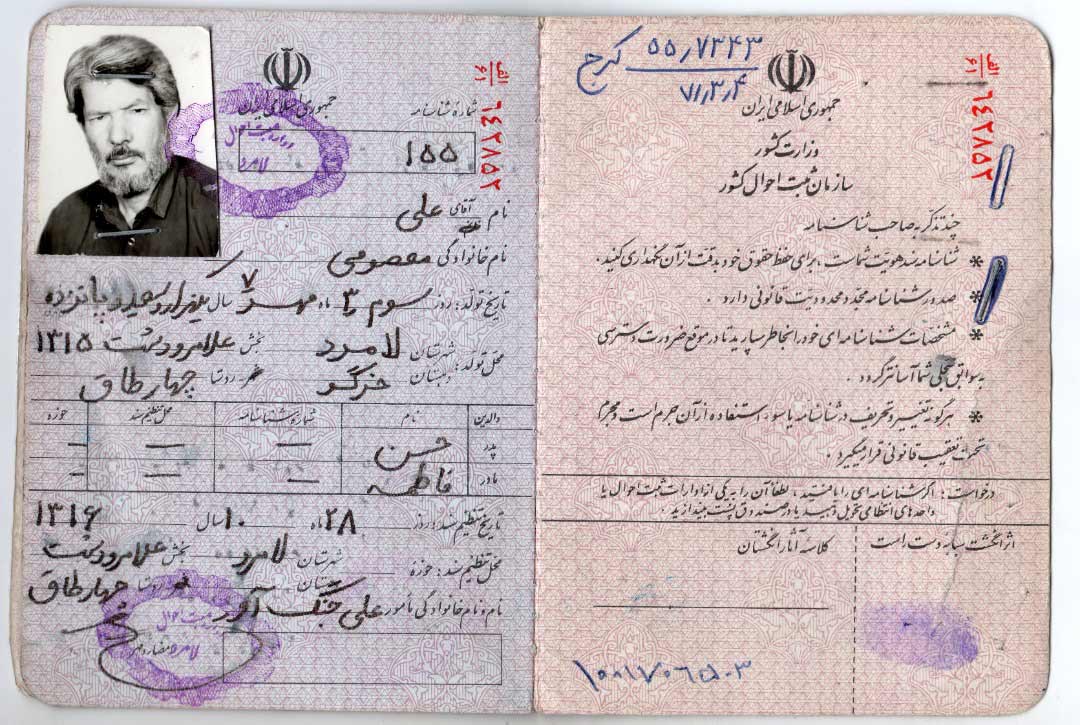 ۵۵٫۷۳۴۳
۷۱٫۳٫۴
کرج
جمهوری اسلامی ایران
وزارت کشور
سازمان ثبت احوال کشور
الف
۶۱
۶۴۲۸۵۲
چند تذکر به صاحب شناسنامه
* شناسنامه سند هویت شماست ، برای حفظ حقوق خود بدقت از آن نگهداری کنید .
* صدور شناسنامه مجدد محدودیت قانونی دارد .
* مشخصات شناسنامه ای خود را بخاطر بسپارید تا در موقع ضرورت دسترسی
بسوابق سجلی شما آسانتر گردد .
* هرگونه تغییر و تحریف در شناسنامه یا سوء استفاده از آن جرم است و مجرم
تحت تعقیب قانونی قرار میگیرد .
درخواست : اگر شناسنامه ای را یافتید ، لطفاً آن را به یکی از ادارات ثبت احوال یا
واحدهای انتظامی تحویل دهید یا در صندوق پست بیندازید .
اثر انگشت سبابه دست راست
کلاسه آثار انگشتان
جمهوری اسلامی ایران
شماره شناسنامه
۱۵۵
الف
۶۱
۶۴۲۸۵۲
ثبت احوال
لامرد
نام آقای علی
نام خانوادگی معصومی
تاریخ تولد : روز سوم ۳ ماه مهر ۷ سال یکهزار و سیصد و پانزده
۱۳۱۵
محل تولد : شهرستان لامرد بخش علامرودشت
دهستان خرگو روستا چهارطاق
والدین نام شماره شناسنامه محل تنظیم سند حوزه
پدر حسن — — —
مادر فاطمه — — —
تاریخ تنظیم سند : روز ۲۸ ماه ۱۰ سال ۱۳۱۶
محل تنظیم سند : حوزه شهرستان لامرد بخش علامرودشت
دهستان روستا چهارطاق
نام و نام خانوادگی مأمور علی جنگ آور
ثبت احوال
لامرد